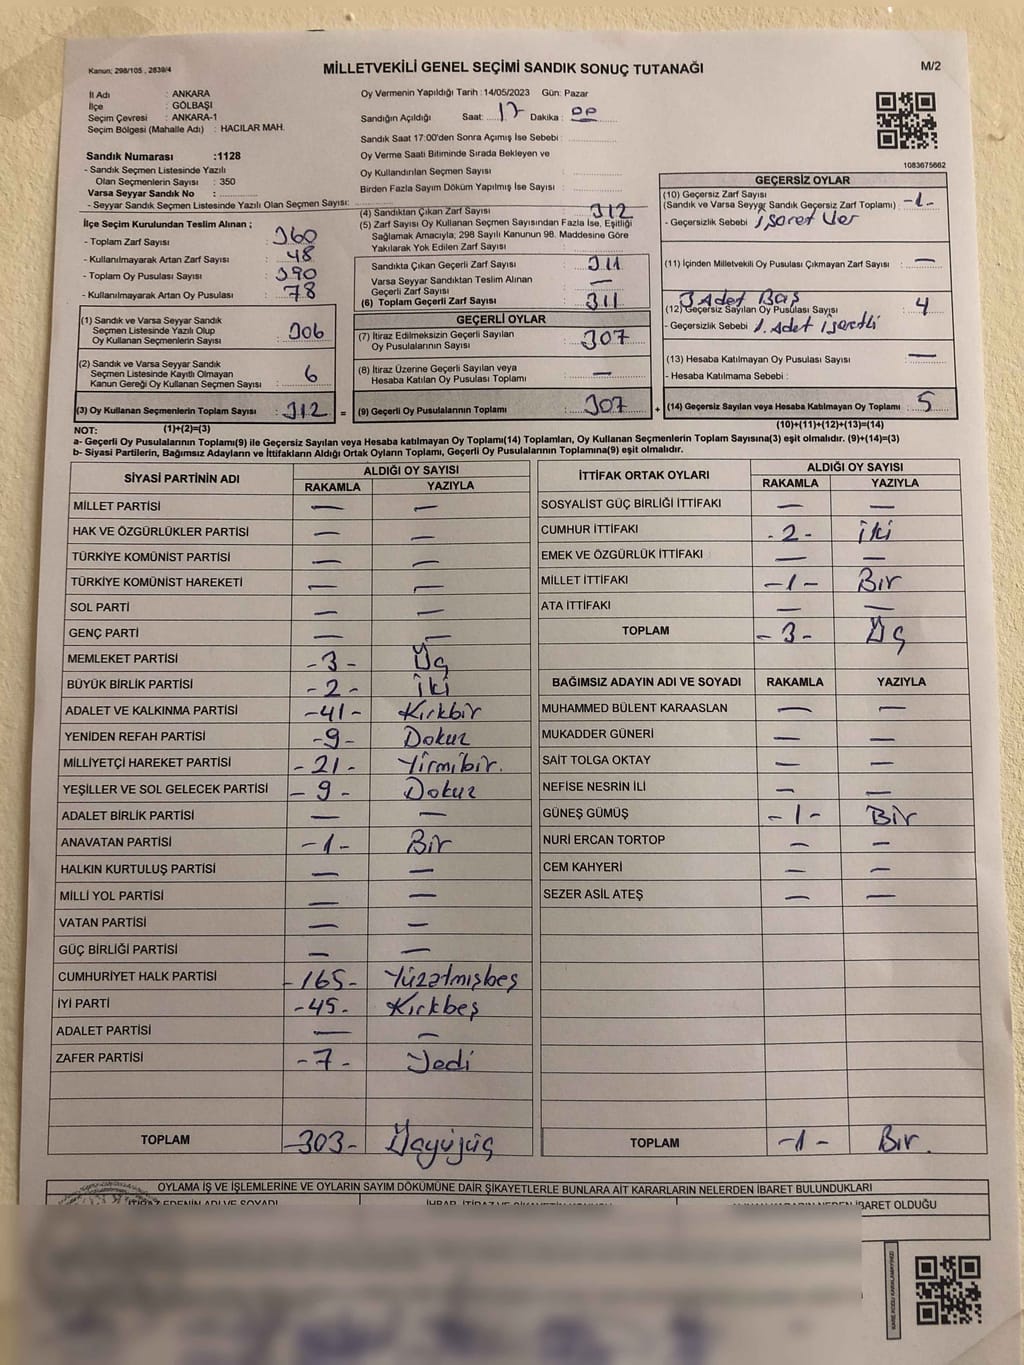 Kanun; 298/105 , 2839/4
MİLLETVEKİLİ GENEL SEÇİMİ SANDIK SONUÇ TUTANAĞI
M/2
İl Adı : ANKARA
İlçe : GÖLBAŞI
Seçim Çevresi : ANKARA-1
Seçim Bölgesi (Mahalle Adı) : HACILAR MAH.
Sandık Numarası :1128
- Sandık Seçmen Listesinde Yazılı
Olan Seçmenlerin Sayısı : 350
Varsa Seyyar Sandık No :
- Seyyar Sandık Seçmen Listesinde Yazılı Olan Seçmen Sayısı:
Oy Vermenin Yapıldığı Tarih :14/05/2023 Gün: Pazar
Sandığın Açıldığı Saat: 17 Dakika : 00
Sandık Saat 17:00'den Sonra Açımış İse Sebebi :
Oy Verme Saati Bitiminde Sırada Bekleyen ve
Oy Kullandırılan Seçmen Sayısı :
Birden Fazla Sayım Döküm Yapılmış İse Sayısı :
1083675662
İlçe Seçim Kurulundan Teslim Alınan ;
- Toplam Zarf Sayısı : 360
- Kullanılmayarak Artan Zarf Sayısı : 48
- Toplam Oy Pusulası Sayısı : 390
- Kullanılmayarak Artan Oy Pusulası : 78
(1) Sandık ve Varsa Seyyar Sandık
Seçmen Listesinde Yazılı Olup
Oy Kullanan Seçmenlerin Sayısı : 306
(2) Sandık ve Varsa Seyyar Sandık
Seçmen Listesinde Kayıtlı Olmayan
Kanun Gereği Oy Kullanan Seçmen Sayısı : 6
(3) Oy Kullanan Seçmenlerin Toplam Sayısı : 312 =
(1)+(2)=(3)
(4) Sandıktan Çıkan Zarf Sayısı : 312
(5) Zarf Sayısı Oy Kullanan Seçmen Sayısından Fazla İse, Eşitliği
Sağlamak Amacıyla, 298 Sayılı Kanunun 98. Maddesine Göre
Yakılarak Yok Edilen Zarf Sayısı :
Sandıkta Çıkan Geçerli Zarf Sayısı : 311
Varsa Seyyar Sandıktan Teslim Alınan
Geçerli Zarf Sayısı : —
(6) Toplam Geçerli Zarf Sayısı : 311
GEÇERLİ OYLAR
(7) İtiraz Edilmeksizin Geçerli Sayılan
Oy Pusulalarının Sayısı : 307
(8) İtiraz Üzerine Geçerli Sayılan veya
Hesaba Katılan Oy Pusulası Toplamı : —
(9) Geçerli Oy Pusulalarının Toplamı : 307 +
GEÇERSİZ OYLAR
(10) Geçersiz Zarf Sayısı
(Sandık ve Varsa Seyyar Sandık Geçersiz Zarf Toplamı) : -1-
- Geçersizlik Sebebi : işaret Var
(11) İçinden Milletvekili Oy Pusulası Çıkmayan Zarf Sayısı : —
3 Adet Boş
(12) Geçersiz Sayılan Oy Pusulası Sayısı : 4
- Geçersizlik Sebebi : 1. Adet işaretli
(13) Hesaba Katılmayan Oy Pusulası Sayısı : —
- Hesaba Katılmama Sebebi :
(14) Geçersiz Sayılan veya Hesaba Katılmayan Oy Toplamı : 5
(10)+(11)+(12)+(13)=(14)
NOT:
a- Geçerli Oy Pusulalarının Toplamı(9) ile Geçersiz Sayılan veya Hesaba katılmayan Oy Toplamı(14) Toplamları, Oy Kullanan Seçmenlerin Toplam Sayısına(3) eşit olmalıdır. (9)+(14)=(3)
b- Siyasi Partilerin, Bağımsız Adayların ve İttifakların Aldığı Ortak Oyların Toplamı, Geçerli Oy Pusulalarının Toplamına(9) eşit olmalıdır.
SİYASİ PARTİNİN ADI ALDIĞI OY SAYISI
RAKAMLA YAZIYLA
MİLLET PARTİSİ — —
HAK VE ÖZGÜRLÜKLER PARTİSİ — —
TÜRKİYE KOMÜNİST PARTİSİ — —
TÜRKİYE KOMÜNİST HAREKETİ — —
SOL PARTİ — —
GENÇ PARTİ — —
MEMLEKET PARTİSİ -3- Üç
BÜYÜK BİRLİK PARTİSİ -2- İki
ADALET VE KALKINMA PARTİSİ -41- Kırkbir
YENİDEN REFAH PARTİSİ -9- Dokuz
MİLLİYETÇİ HAREKET PARTİSİ -21- Yirmibir.
YEŞİLLER VE SOL GELECEK PARTİSİ -9- Dokuz
ADALET BİRLİK PARTİSİ — —
ANAVATAN PARTİSİ -1- Bir
HALKIN KURTULUŞ PARTİSİ — —
MİLLİ YOL PARTİSİ — —
VATAN PARTİSİ — —
GÜÇ BİRLİĞİ PARTİSİ — —
CUMHURİYET HALK PARTİSİ -165- Yüzatmışbeş
İYİ PARTİ -45- Kırkbeş
ADALET PARTİSİ — —
ZAFER PARTİSİ -7- Yedi
TOPLAM -303- Üçyüzüç
İTTİFAK ORTAK OYLARI ALDIĞI OY SAYISI
RAKAMLA YAZIYLA
SOSYALİST GÜÇ BİRLİĞİ İTTİFAKI — —
CUMHUR İTTİFAKI -2- İki
EMEK VE ÖZGÜRLÜK İTTİFAKI — —
MİLLET İTTİFAKI -1- Bir
ATA İTTİFAKI — —
TOPLAM -3- Üç
BAĞIMSIZ ADAYIN ADI VE SOYADI RAKAMLA YAZIYLA
MUHAMMED BÜLENT KARAASLAN — —
MUKADDER GÜNERİ — —
SAİT TOLGA OKTAY — —
NEFİSE NESRİN İLİ — —
GÜNEŞ GÜMÜŞ -1- Bir
NURİ ERCAN TORTOP — —
CEM KAHYERİ — —
SEZER ASİL ATEŞ — —
TOPLAM -1- Bir.
OYLAMA İŞ VE İŞLEMLERİNE VE OYLARIN SAYIM DÖKÜMÜNE DAİR ŞİKAYETLERLE BUNLARA AİT KARARLARIN NELERDEN İBARET BULUNDUKLARI
İBARET OLDUĞU